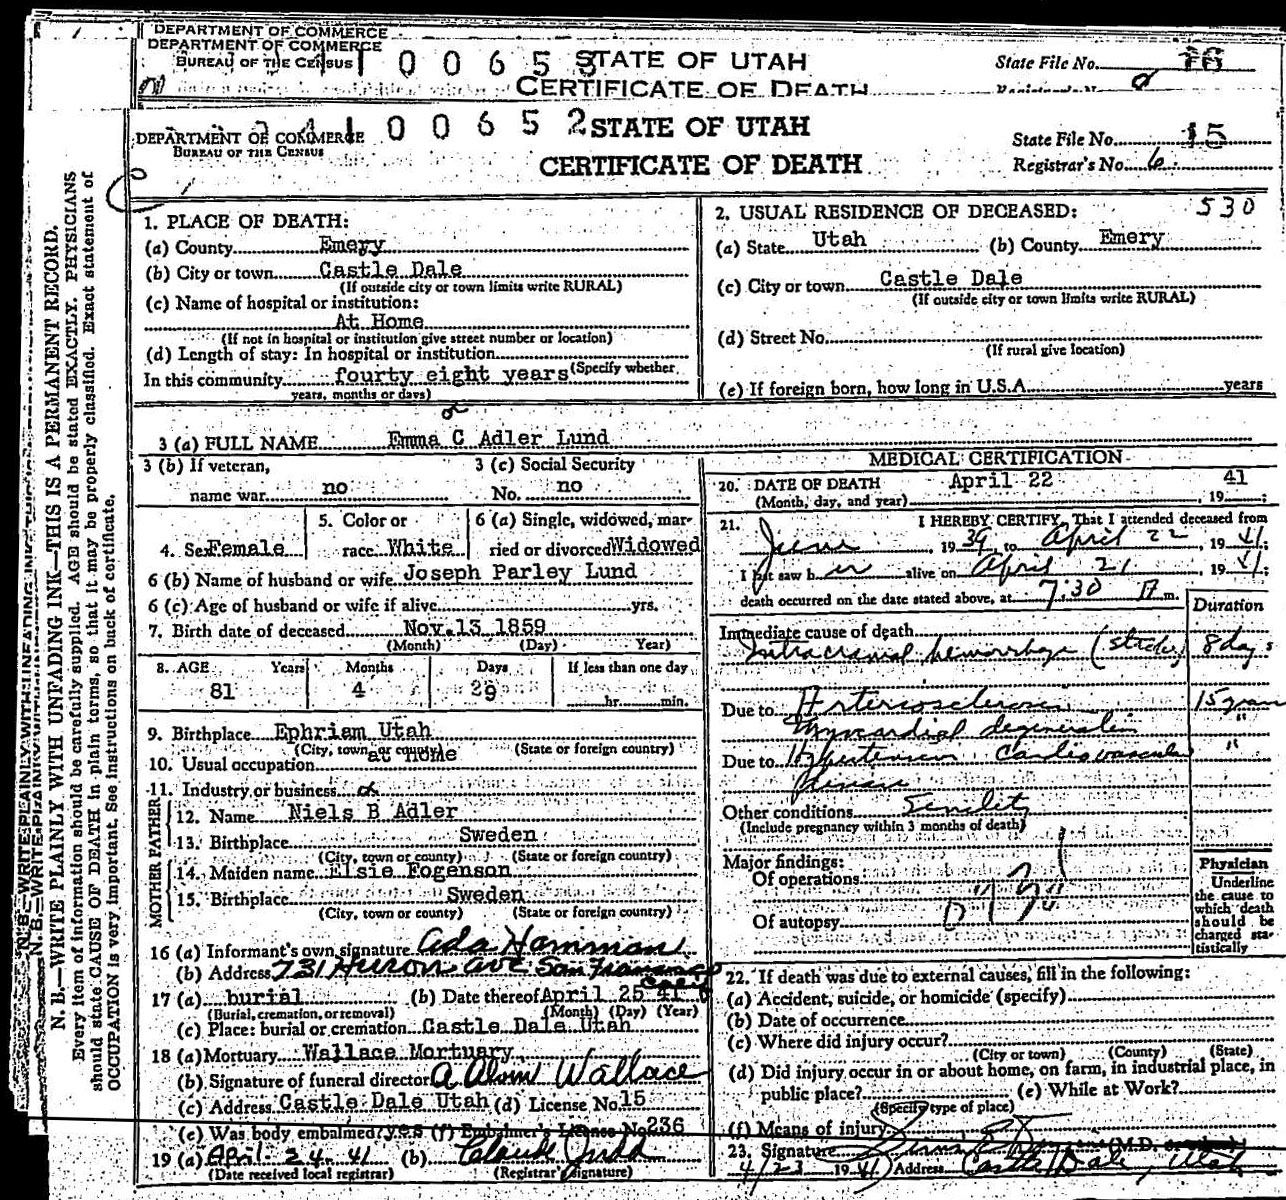 DEPARTMENT OF COMMERCE
DEPARTMENT OF COMMERCE
BUREAU OF THE CENSUS
0 0 6 5 STATE OF UTAH
State File No.
CERTIFICATE OF DEATH
DEPARTMENT OF COMMERCE 0 0 6 5 2 STATE OF UTAH
State File No. 15
BUREAU OF THE CENSUS
CERTIFICATE OF DEATH
Registrar's No. 6
N. B.—WRITE PLAINLY WITH UNFADING INK—THIS IS A PERMANENT RECORD.
Every item of information should be carefully supplied. AGE should be stated EXACTLY. PHYSICIANS
should state CAUSE OF DEATH in plain terms, so that it may be properly classified. Exact statement of
OCCUPATION is very important. See instructions on back of certificate.
1. PLACE OF DEATH:
(a) County Emery
(b) City or town Castle Dale
(If outside city or town limits write RURAL)
(c) Name of hospital or institution:
At Home
(If not in hospital or institution give street number or location)
(d) Length of stay: In hospital or institution
In this community fourty eight years (Specify whether
years, months or days)
2. USUAL RESIDENCE OF DECEASED: 530
(a) State Utah (b) County Emery
(c) City or town Castle Dale
(If outside city or town limits write RURAL)
(d) Street No.
(If rural give location)
(e) If foreign born, how long in U.S.A. years
3 (a) FULL NAME Emma C Adler Lund
3 (b) If veteran, 3 (c) Social Security
name war no No. no
4. Sex Female 5. Color or race White 6 (a) Single, widowed, married or divorced Widowed
6 (b) Name of husband or wife Joseph Parley Lund
6 (c) Age of husband or wife if alive yrs.
7. Birth date of deceased Nov. 13 1859
(Month) (Day) Year)
8. AGE Years Months Days If less than one day
81 4 29 hr. min.
9. Birthplace Ephriam Utah
(City, town or county) (State or foreign country)
10. Usual occupation at home
11. Industry or business
FATHER
12. Name Niels B Adler
13. Birthplace Sweden
(City, town or county) (State or foreign country)
MOTHER
14. Maiden name Elsie Fogenson
15. Birthplace Sweden
(City, town or county) (State or foreign country)
16 (a) Informant's own signature Ada Hamman
(b) Address 731 Huron ave San Francisco Calif
17 (a) burial (b) Date thereof April 25 41
(Burial, cremation, or removal) (Month) (Day) (Year)
(c) Place: burial or cremation Castle Dale Utah
18 (a) Mortuary Wallace Mortuary
(b) Signature of funeral director A Alvin Wallace
(c) Address Castle Dale Utah (d) License No. 15
(e) Was body embalmed? yes (f) Embalmer's License No. 236
19 (a) April 24 41 (b) Claude Judd
(Date received local registrar) (Registrar's signature)
MEDICAL CERTIFICATION
20. DATE OF DEATH April 22 41
(Month, day, and year) , 19 ;
21. I HEREBY CERTIFY, That I attended deceased from
June , 19 39, to April 22 , 19 41;
I last saw h er alive on April 21 , 19 41;
death occurred on the date stated above, at 7:30 A m.
Duration
Immediate cause of death
Intracranial hemorrhage (stroke) 8 days
Due to Arteriosclerosis 15 years
Myocardial degeneration "
Due to Hypertension Cardiovascular "
Other conditions Senility
(Include pregnancy within 3 months of death)
Major findings:
Of operations
Of autopsy
Physician
Underline
the cause to
which death
should be
charged sta-
tistically
22. If death was due to external causes, fill in the following:
(a) Accident, suicide, or homicide (specify)
(b) Date of occurrence
(c) Where did injury occur?
(City or town) (County) (State)
(d) Did injury occur in or about home, on farm, in industrial place, in
public place? (e) While at Work?
(Specify type of place)
(f) Means of injury
23. Signature (M.D.
4/23 1941 Address Castle Dale, Utah